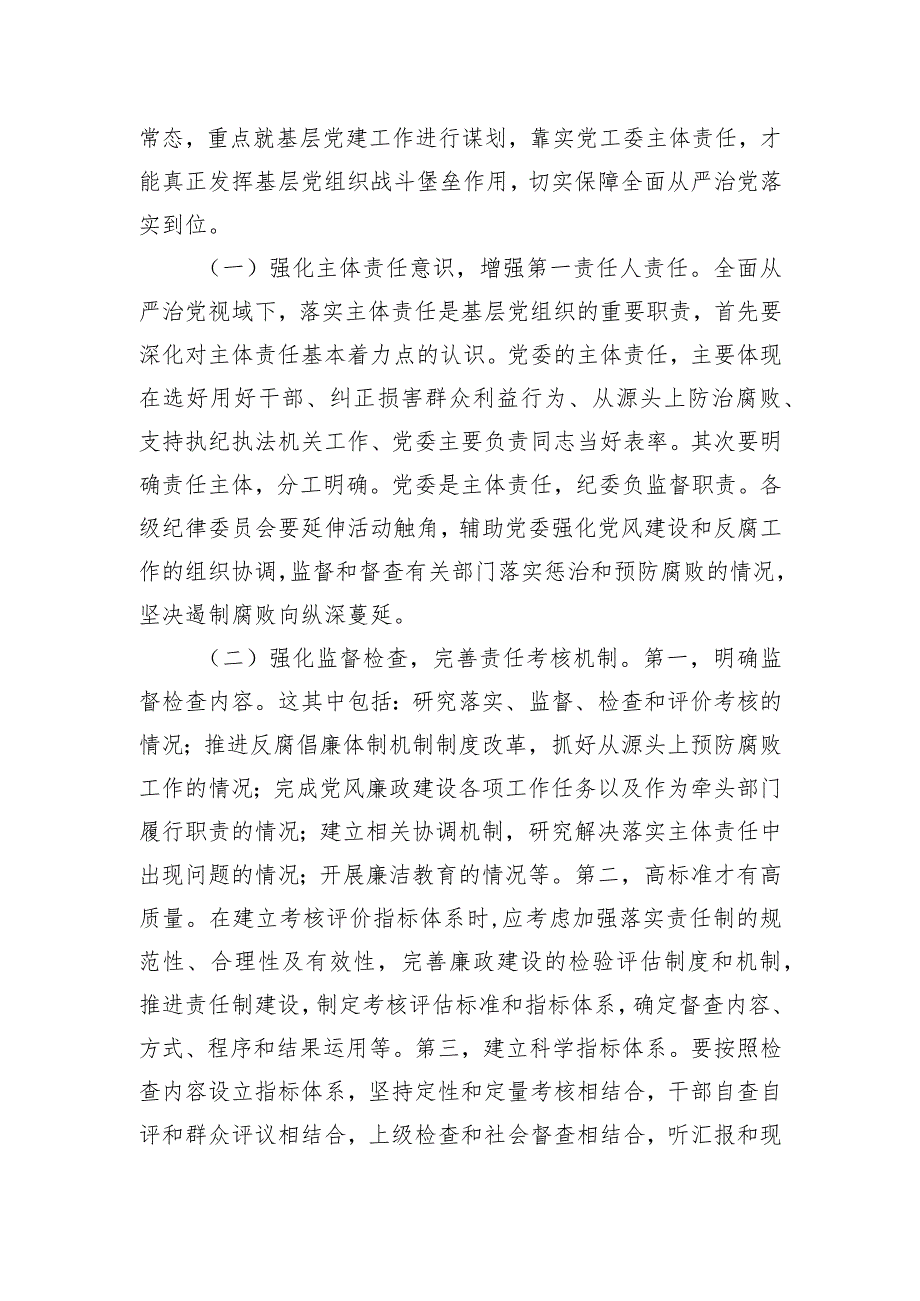 常态，重点就基层党建工作进行谋划，靠实党工委主体责任，才
能真正发挥基层党组织战斗堡垒作用，切实保障全面从严治党落
实到位。
（一）强化主体责任意识，增强第一责任人责任。全面从
严治党视域下，落实主体责任是基层党组织的重要职责，首先要
深化对主体责任基本着力点的认识。党委的主体责任，主要体现
在选好用好干部、纠正损害群众利益行为、从源头上防治腐败、
支持执纪执法机关工作、党委主要负责同志当好表率。其次要明
确责任主体，分工明确。党委是主体责任，纪委负监督职责。各
级纪律委员会要延伸活动触角，辅助党委强化党风建设和反腐工
作的组织协调,监督和督查有关部门落实惩治和预防腐败的情况，
坚决遏制腐败向纵深蔓延。
（二）强化监督检查，完善责任考核机制。第一，明确监
督检查内容。这其中包括：研究落实、监督、检查和评价考核的
情况；推进反腐倡廉体制机制制度改革，抓好从源头上预防腐败
工作的情况；完成党风廉政建设各项工作任务以及作为牵头部门
履行职责的情况；建立相关协调机制，研究解决落实主体责任中
出现问题的情况；开展廉洁教育的情况等。第二，高标准才有高
质量。在建立考核评价指标体系时,应考虑加强落实责任制的规
范性、合理性及有效性，完善廉政建设的检验评估制度和机制，
推进责任制建设，制定考核评估标准和指标体系，确定督查内容、
方式、程序和结果运用等。第三，建立科学指标体系。要按照检
查内容设立指标体系，坚持定性和定量考核相结合，干部自查自
评和群众评议相结合，上级检查和社会督查相结合，听汇报和现